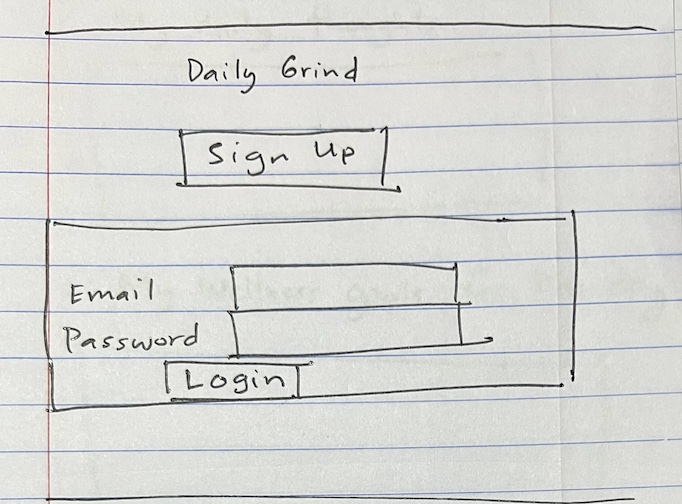 Daily Grind
Sign Up
Email
Password
Login